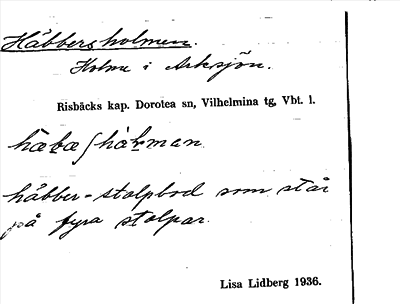 Håbbersholmen.
Holme i Arksjön.
Risbäcks kap. Dorotea sn, Vilhelmina tg, Vbt. l.
håbber-stolpbod som står
på fyra stolpar.
Lisa Lidberg 1936.